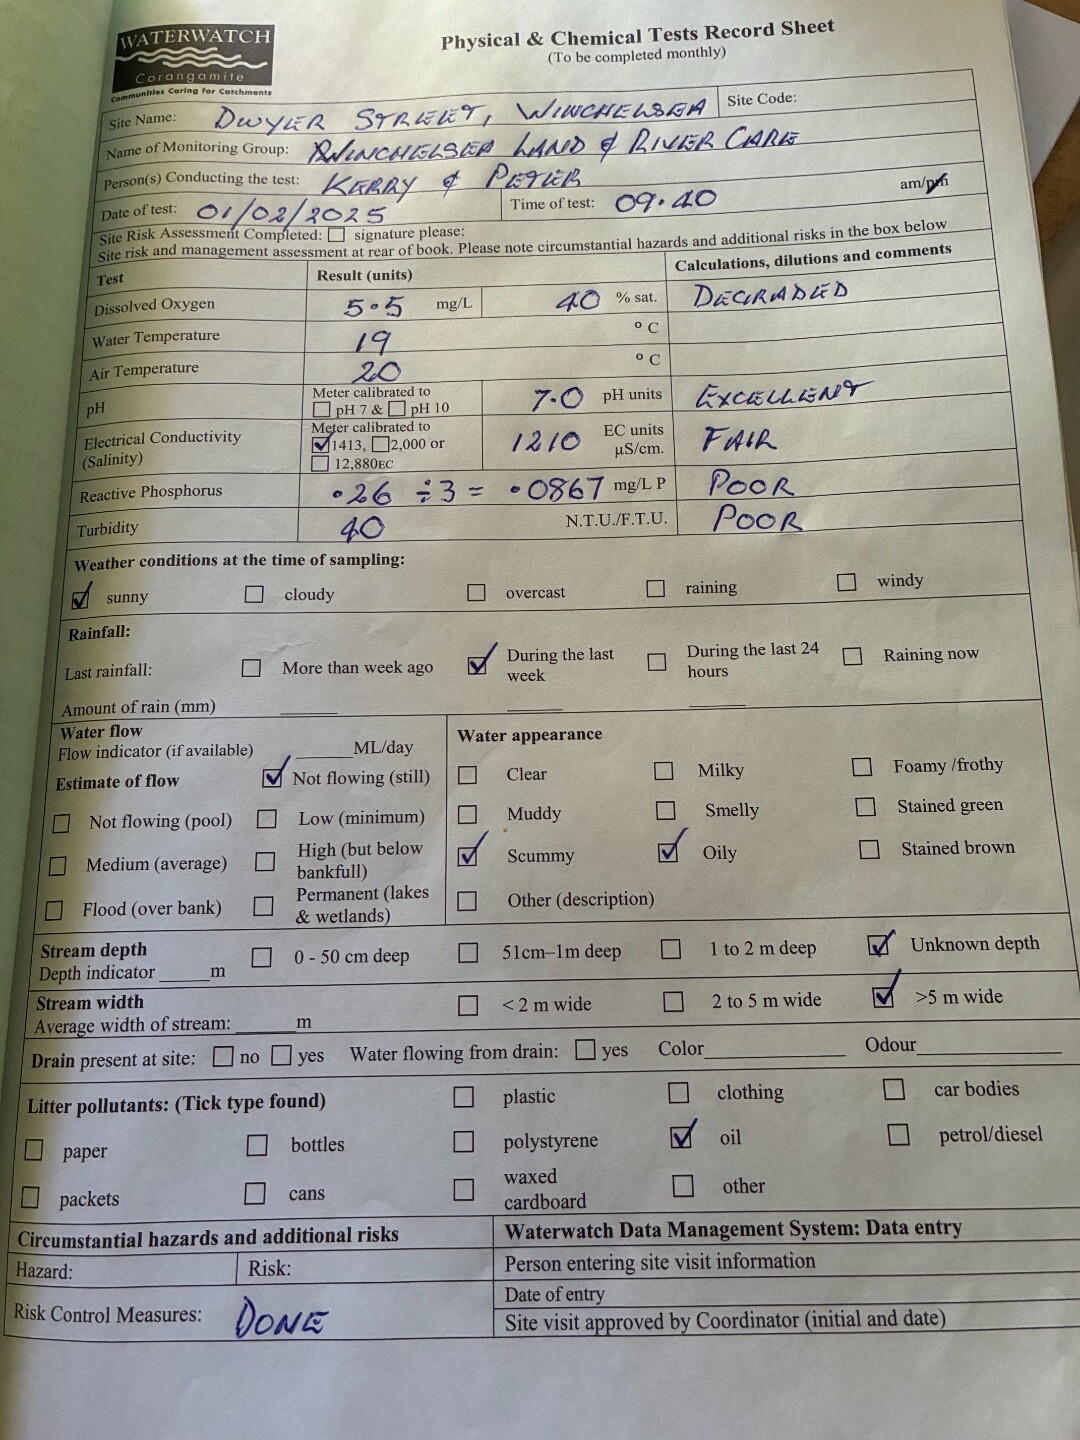 WATERWATCH
Corangamite
Communities Caring for Catchments
Physical & Chemical Tests Record Sheet
(To be completed monthly)
Site Name: DWYER STREET, WINCHELSEA Site Code:
Name of Monitoring Group: WINCHELSEA LAND & RIVER CARE
Person(s) Conducting the test: KERRY & PETER
Date of test: 01/02/2025 Time of test: 09.40 am/pm
Site Risk Assessment Completed: ☐ signature please:
Site risk and management assessment at rear of book. Please note circumstantial hazards and additional risks in the box below
Test Result (units) Calculations, dilutions and comments
Dissolved Oxygen 5.5 mg/L 40 % sat. DEGRADED
Water Temperature 19 °C
Air Temperature 20 °C
pH Meter calibrated to ☐ pH 7 & ☐ pH 10 7.0 pH units EXCELLENT
Electrical Conductivity (Salinity) Meter calibrated to ☑ 1413, ☐ 2,000 or ☐ 12,880EC 1210 EC units µS/cm. FAIR
Reactive Phosphorus .26 ÷3 = .0867 mg/L P POOR
Turbidity 40 N.T.U./F.T.U. POOR
Weather conditions at the time of sampling:
☑ sunny ☐ cloudy ☐ overcast ☐ raining ☐ windy
Rainfall:
Last rainfall: ☐ More than week ago ☑ During the last week ☐ During the last 24 hours ☐ Raining now
Amount of rain (mm)
Water flow
Flow indicator (if available) ______ML/day
Estimate of flow ☑ Not flowing (still)
☐ Not flowing (pool) ☐ Low (minimum)
☐ Medium (average) ☐ High (but below bankfull)
☐ Flood (over bank) ☐ Permanent (lakes & wetlands)
Water appearance
☐ Clear ☐ Milky ☐ Foamy /frothy
☐ Muddy ☐ Smelly ☐ Stained green
☑ Scummy ☑ Oily ☐ Stained brown
☐ Other (description)
Stream depth
Depth indicator ______m ☐ 0 - 50 cm deep ☐ 51cm–1m deep ☐ 1 to 2 m deep ☑ Unknown depth
Stream width
Average width of stream: ______m ☐ < 2 m wide ☐ 2 to 5 m wide ☑ >5 m wide
Drain present at site: ☐ no ☐ yes Water flowing from drain: ☐ yes Color______ Odour______
Litter pollutants: (Tick type found) ☐ plastic ☐ clothing ☐ car bodies
☐ paper ☐ bottles ☐ polystyrene ☑ oil ☐ petrol/diesel
☐ packets ☐ cans ☐ waxed cardboard ☐ other
Circumstantial hazards and additional risks
Hazard: Risk:
Risk Control Measures: DONE
Waterwatch Data Management System: Data entry
Person entering site visit information
Date of entry
Site visit approved by Coordinator (initial and date)